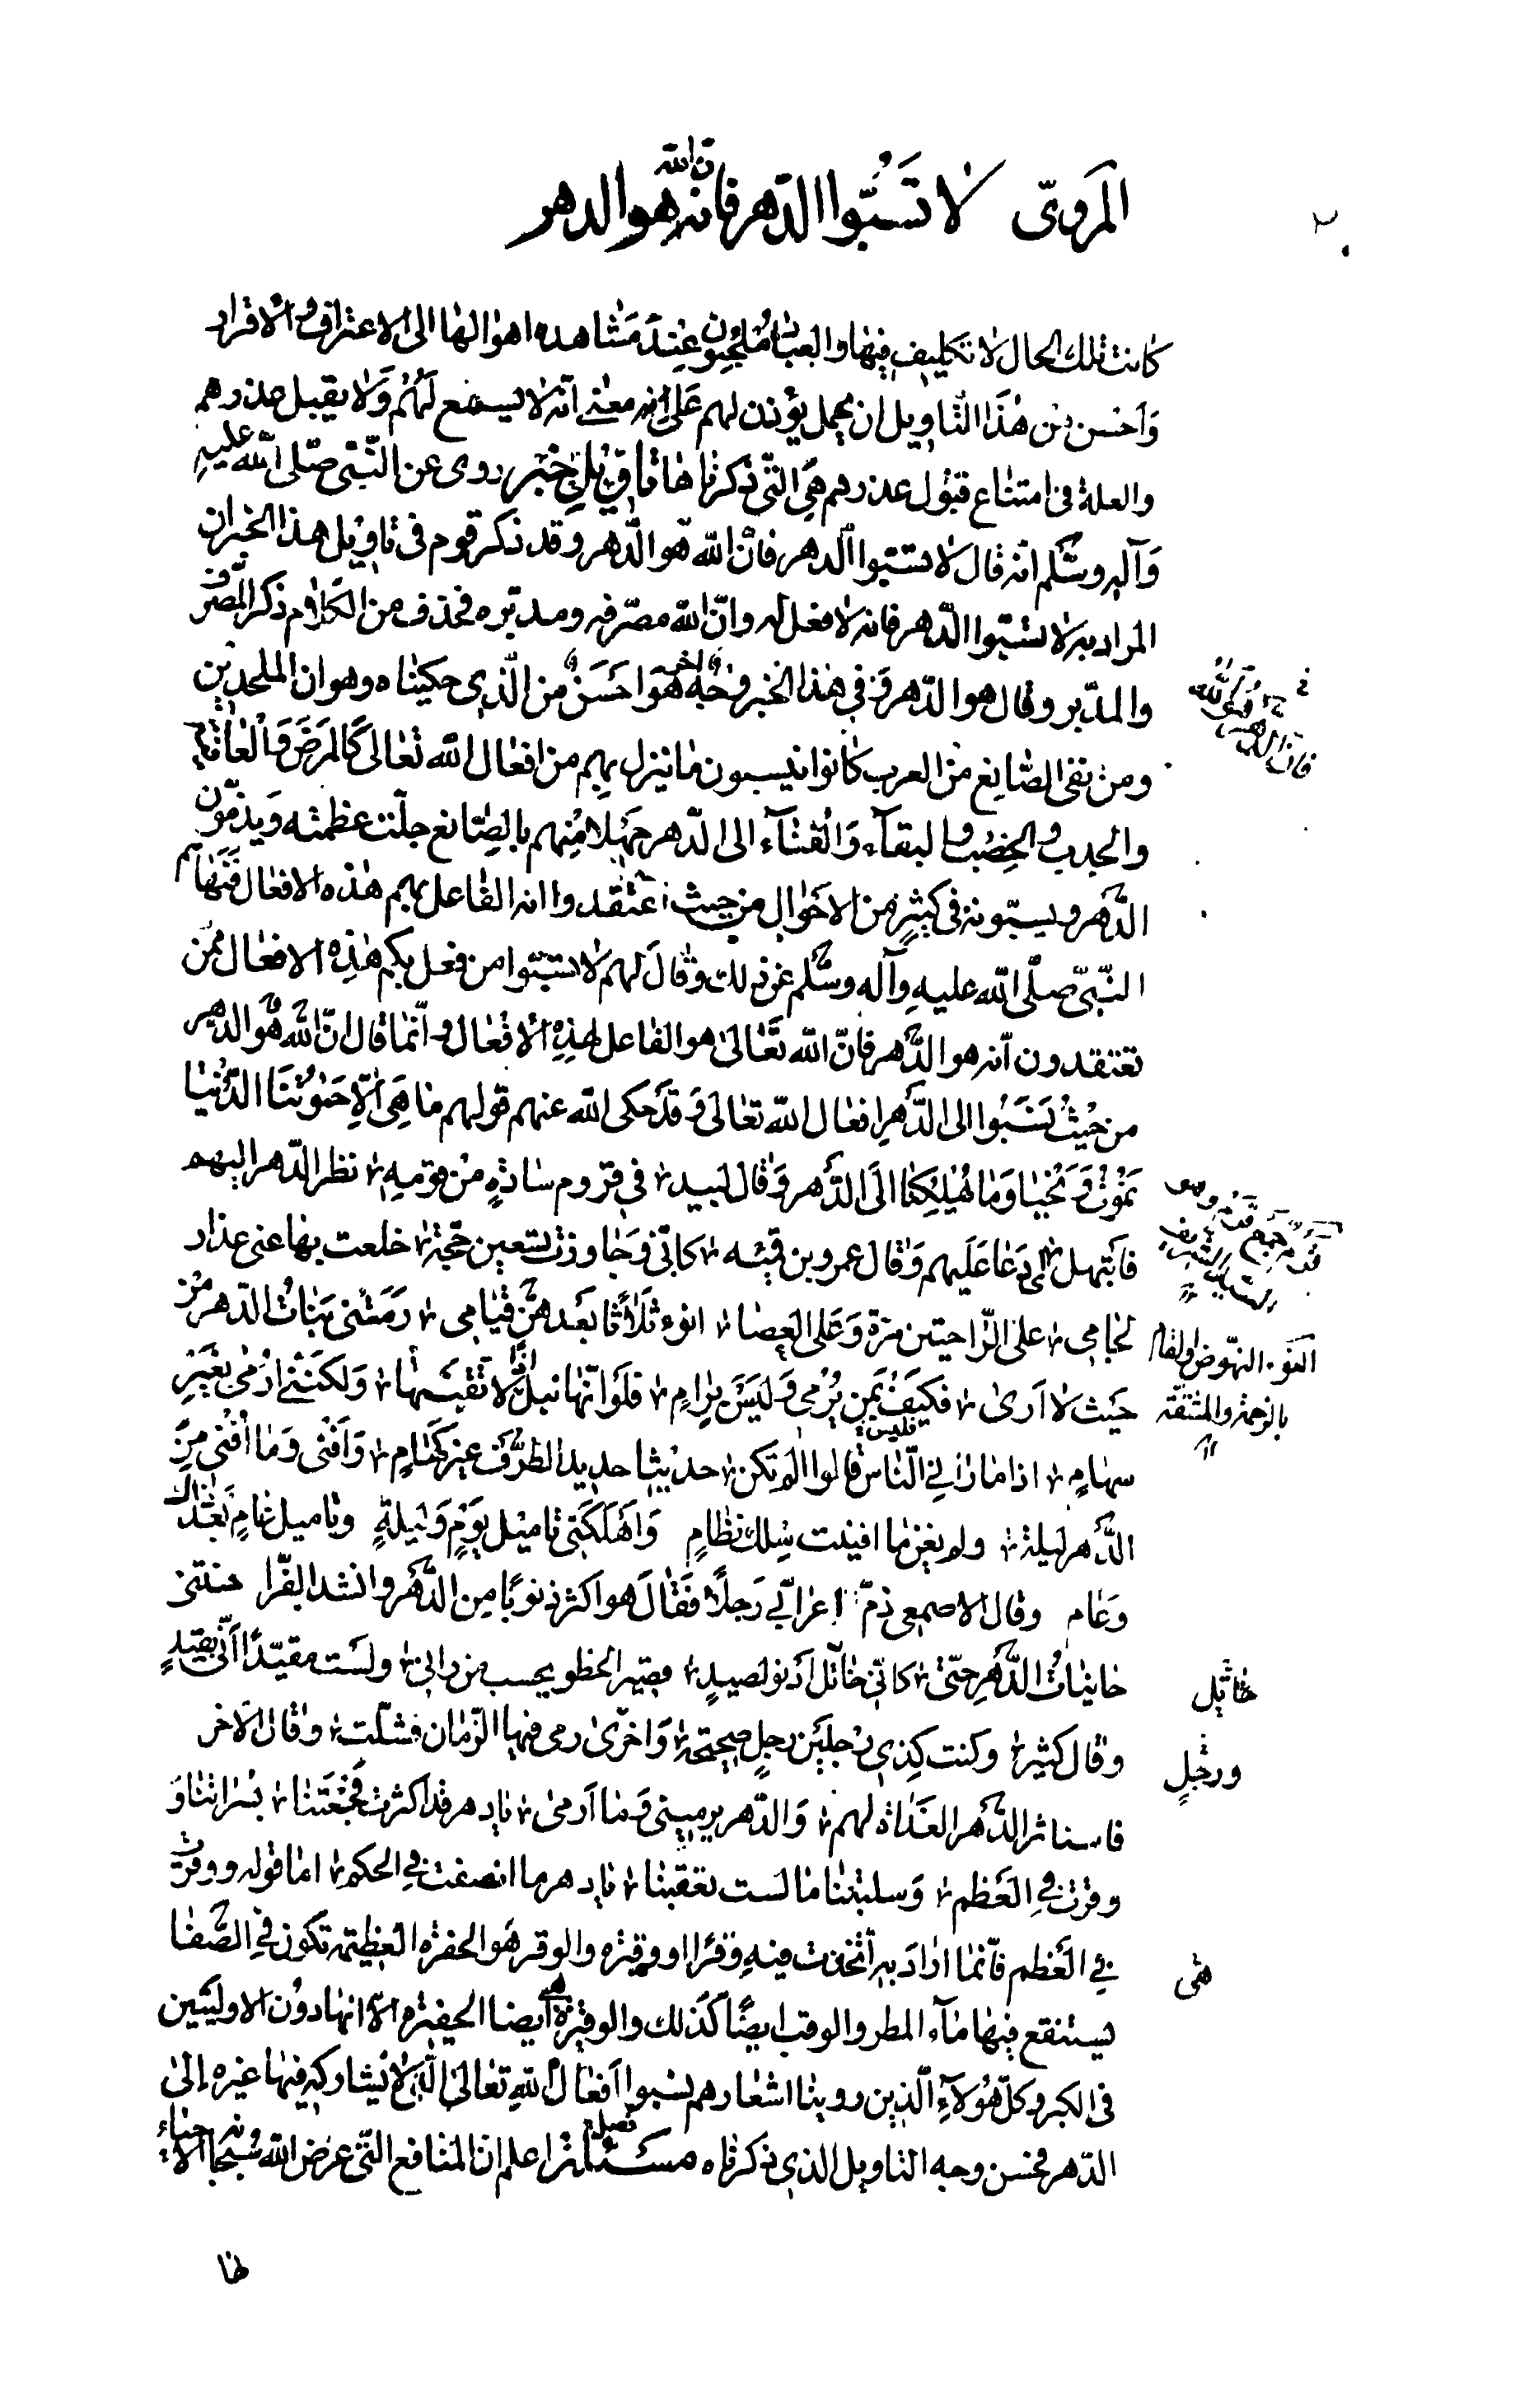 المروىّ لا تَسُبّوا الدّهر فانّ اللّه هو الدهر
كانت تلك الحال لا تكليف فيها والعباد مُلْجَئون عِندَ مَشاهدة اهوالها الى الاعتراف والاقرار
وَاَحْسن مِن هٰذَا التّاويل ان يحمل يؤذن لهم عَلىٰ انه معنٰى انّه لا يسمع لَهُمْ وَلا يقبل عذرهم
والعلة فى امتناع قبول عذرهم هِىَ التّى ذكرناها تاويل خبر روى عن النّبّى صلّى اللّه عليه
وَآله وسَلم انّه قال لا تسبّوا الدهر فانّ اللّه هو الدّهر وقد ذكر قوم فى تاويل هذا الخبر ان
المراد به لا تسبّوا الدّهر فانه لا فعل له وانّ اللّه مصرّفه ومدبّره فحذف من الكلام ذكر المصرّف
والمدّبر وقال هو الدّهر وَفى هذا الخبر وجْه آخر هوَ احسَنُ من الّذى حكيناه وهو ان الملحدين
ومن نفى الصّانع من العرب كانوا ينسبون ما ينزل بهم من افعال اللّه تعالى كالمَرَض وَالعافية
والجدب والخِصْب والبقآء وَالفنآء الى الدّهر جَهْلا مِنهم بالصّانع جلّت عظمته وَيذمّون
الدّهر ويسبّونه فى كثيرٍ من الاحْوال من حيث اعتقدوا انه الفاعل بهم هٰذه الافعال فَنَهاهم
النّبىّ صلّى اللّه عليه وآله وسلّم عن ذلك وقال لهم لا تسبّوا من فعل بكم هذِهِ الافعال ممّن
تعتقدون انّه هو الدّهر فانّ اللّه تَعَالىٰ هو الفاعل لهذِهِ الافعال وانّما قال انّ اللّه هو الدهر
من حَيْثُ نَسَبُوا الى الدّهرِ افعال اللّه تعالى وَقَد حكى اللّه عنهم قولهم مَا هِىَ الّا حَيٰوتُنَا الدُّنْيَا
نَمُوتُ وَنَحْيَا وَمَا يُهْلِكُنَا الّا الدَّهر وقال لبيد فى قروم سادةٍ مِن قومِهِ نظر الدّهر اليهم
فابتهل اى دَعَا عَلَيهم وَقال عمرو بن قميئه كانّى وَجاوزت تسعين حجّة خلعت بها عنى عذار
لجامى على الرّاحتين مرّة وَعَلى العصا انوء ثَلاثًا بعَدهنّ قيامى رَمَتْنى بَناتُ الدّهر من
حَيث لا اَرىٰ فكيَفَ بمَن يُرْمى وَلَيسَ بِرامٍ فلوَ انّها نبل اذًا لاتّقيتها وَلكنّنى اُرْمىٰ بغَيْرِ
سهامٍ اذا ما رآنى النّاس قالوا الم تكن حديثا حديد الطّرف غير كَهامٍ وَاَفْنى وَمَا اُفْنى مِنَ
الدّهر ليلة ولم يغن ما افنيت سِلك نظامٍ وَاَهْلَكَنى تاميل يَوْمٍ وَلَيلةٍ وتاميل عامٍ بَعد ذاك
وَعَام وقال الاصمعى ذمّ اعرابّى رَجلاً فَقالَ هو اكثر ذنوبًا من الدّهر وانشد الفرّا حنتنى
حانياتُ الدَّهرِ حتّى كانّى خاتل اَدْنو لصيدٍ قصير الخطو يحسب من رانى ولَست مقيّدًا اَنّى بقيدٍ
وقال كثير وكنت كذِى رجلَيْن رجلٍ صحيحة وَاخرىٰ رمى فيها الزّمان فشلّت وقال الاخر
فاستاثر الدَّهر الغَداة بهم وَالدّهر يرمينى وَما اَرمى يا دهر قد اكثرت فجْعَتَنا بسراتنا وَ
وقرت فى العَظم وَسلبتنا ما لست تعقبنا يا دهر ما انصفت فى الحكم اما قوله ووقرت
فى العَظم فانّما ارادَ به اتّخذت فيهِ وَقرًا او وقيرة والوقر هو الحفرة العظيمة تكون فى الصّفا
يستنقع فيها مآء المطر والوقب ايضًا كَذلك والوقيرة ايضا الحفيرة الّا انها دون الاوليَين
فى الكبر وكلّ هؤلآءِ الّذين روينا اشعارهم نسبوا اَفعال اللّه تعالى الّتى لا يُشاركه فيها غيره اِلىٰ
الدّهر فحسن وجه التاويل الذى ذكرناه فصل مسئلة اعلم ان المنافع التّى عرض اللّه سُبحانه الاحياء
النَوْء النّهوض والقيام
بالزحمة والمشقّة
خاتِل
ورجلٍ
هى
لها